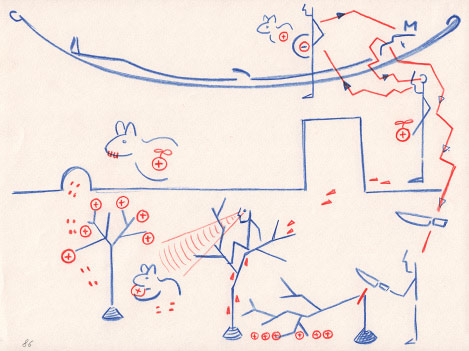 M
86